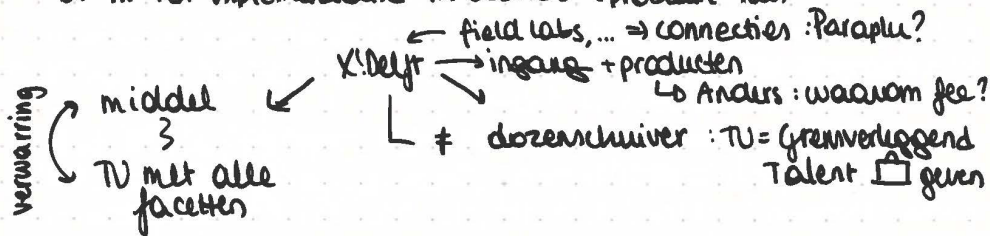 ← field labs, ... ⇒ connecties : Paraplu?
X!Delft → ingang + producten
↳ Anders : waarom fee?
verwarring
middel
}
TU met alle
facetten
≠ dozenschuiver : TU = Grensverleggend
Talent geven